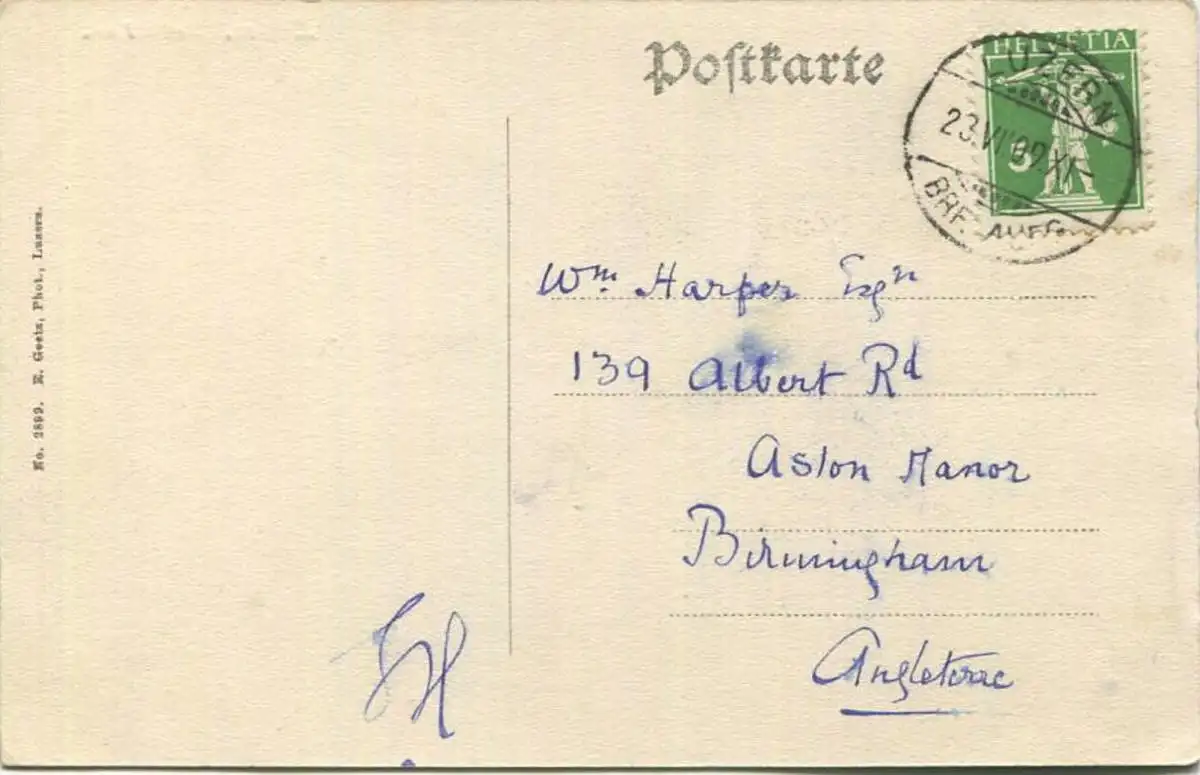 Postkarte
HELVETIA
5
LUZERN
23.VI.09.XI-
BRF. AUFG.
Wm Harper Esqr
139 Albert Rd
Aston Manor
Birmingham
Angleterre
No. 2899. E. Goetz, Phot., Luzern.